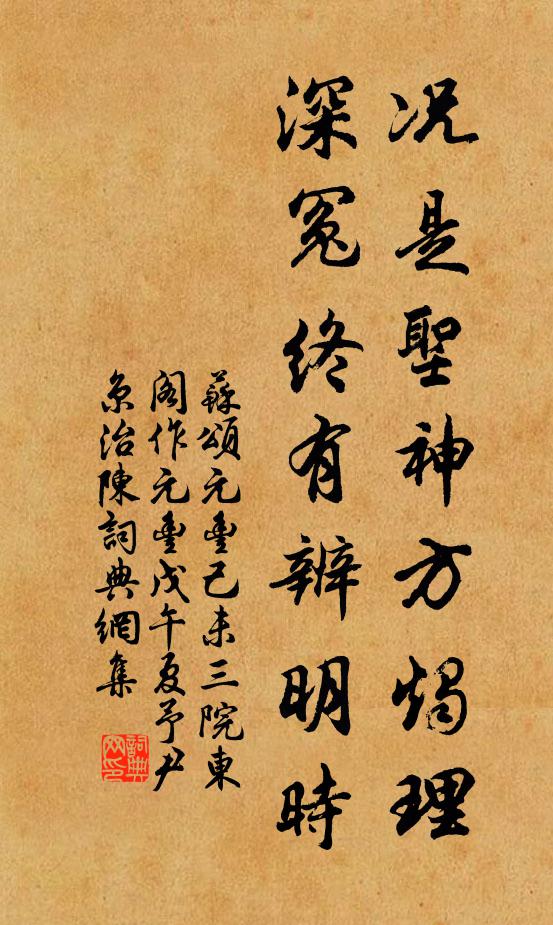 况是聖神方燭理
深冤終有辨明時
蘇頌元豐己未三院東
閣作元豐戊午夏予尹
京治陳詞典網集
詞典
网印